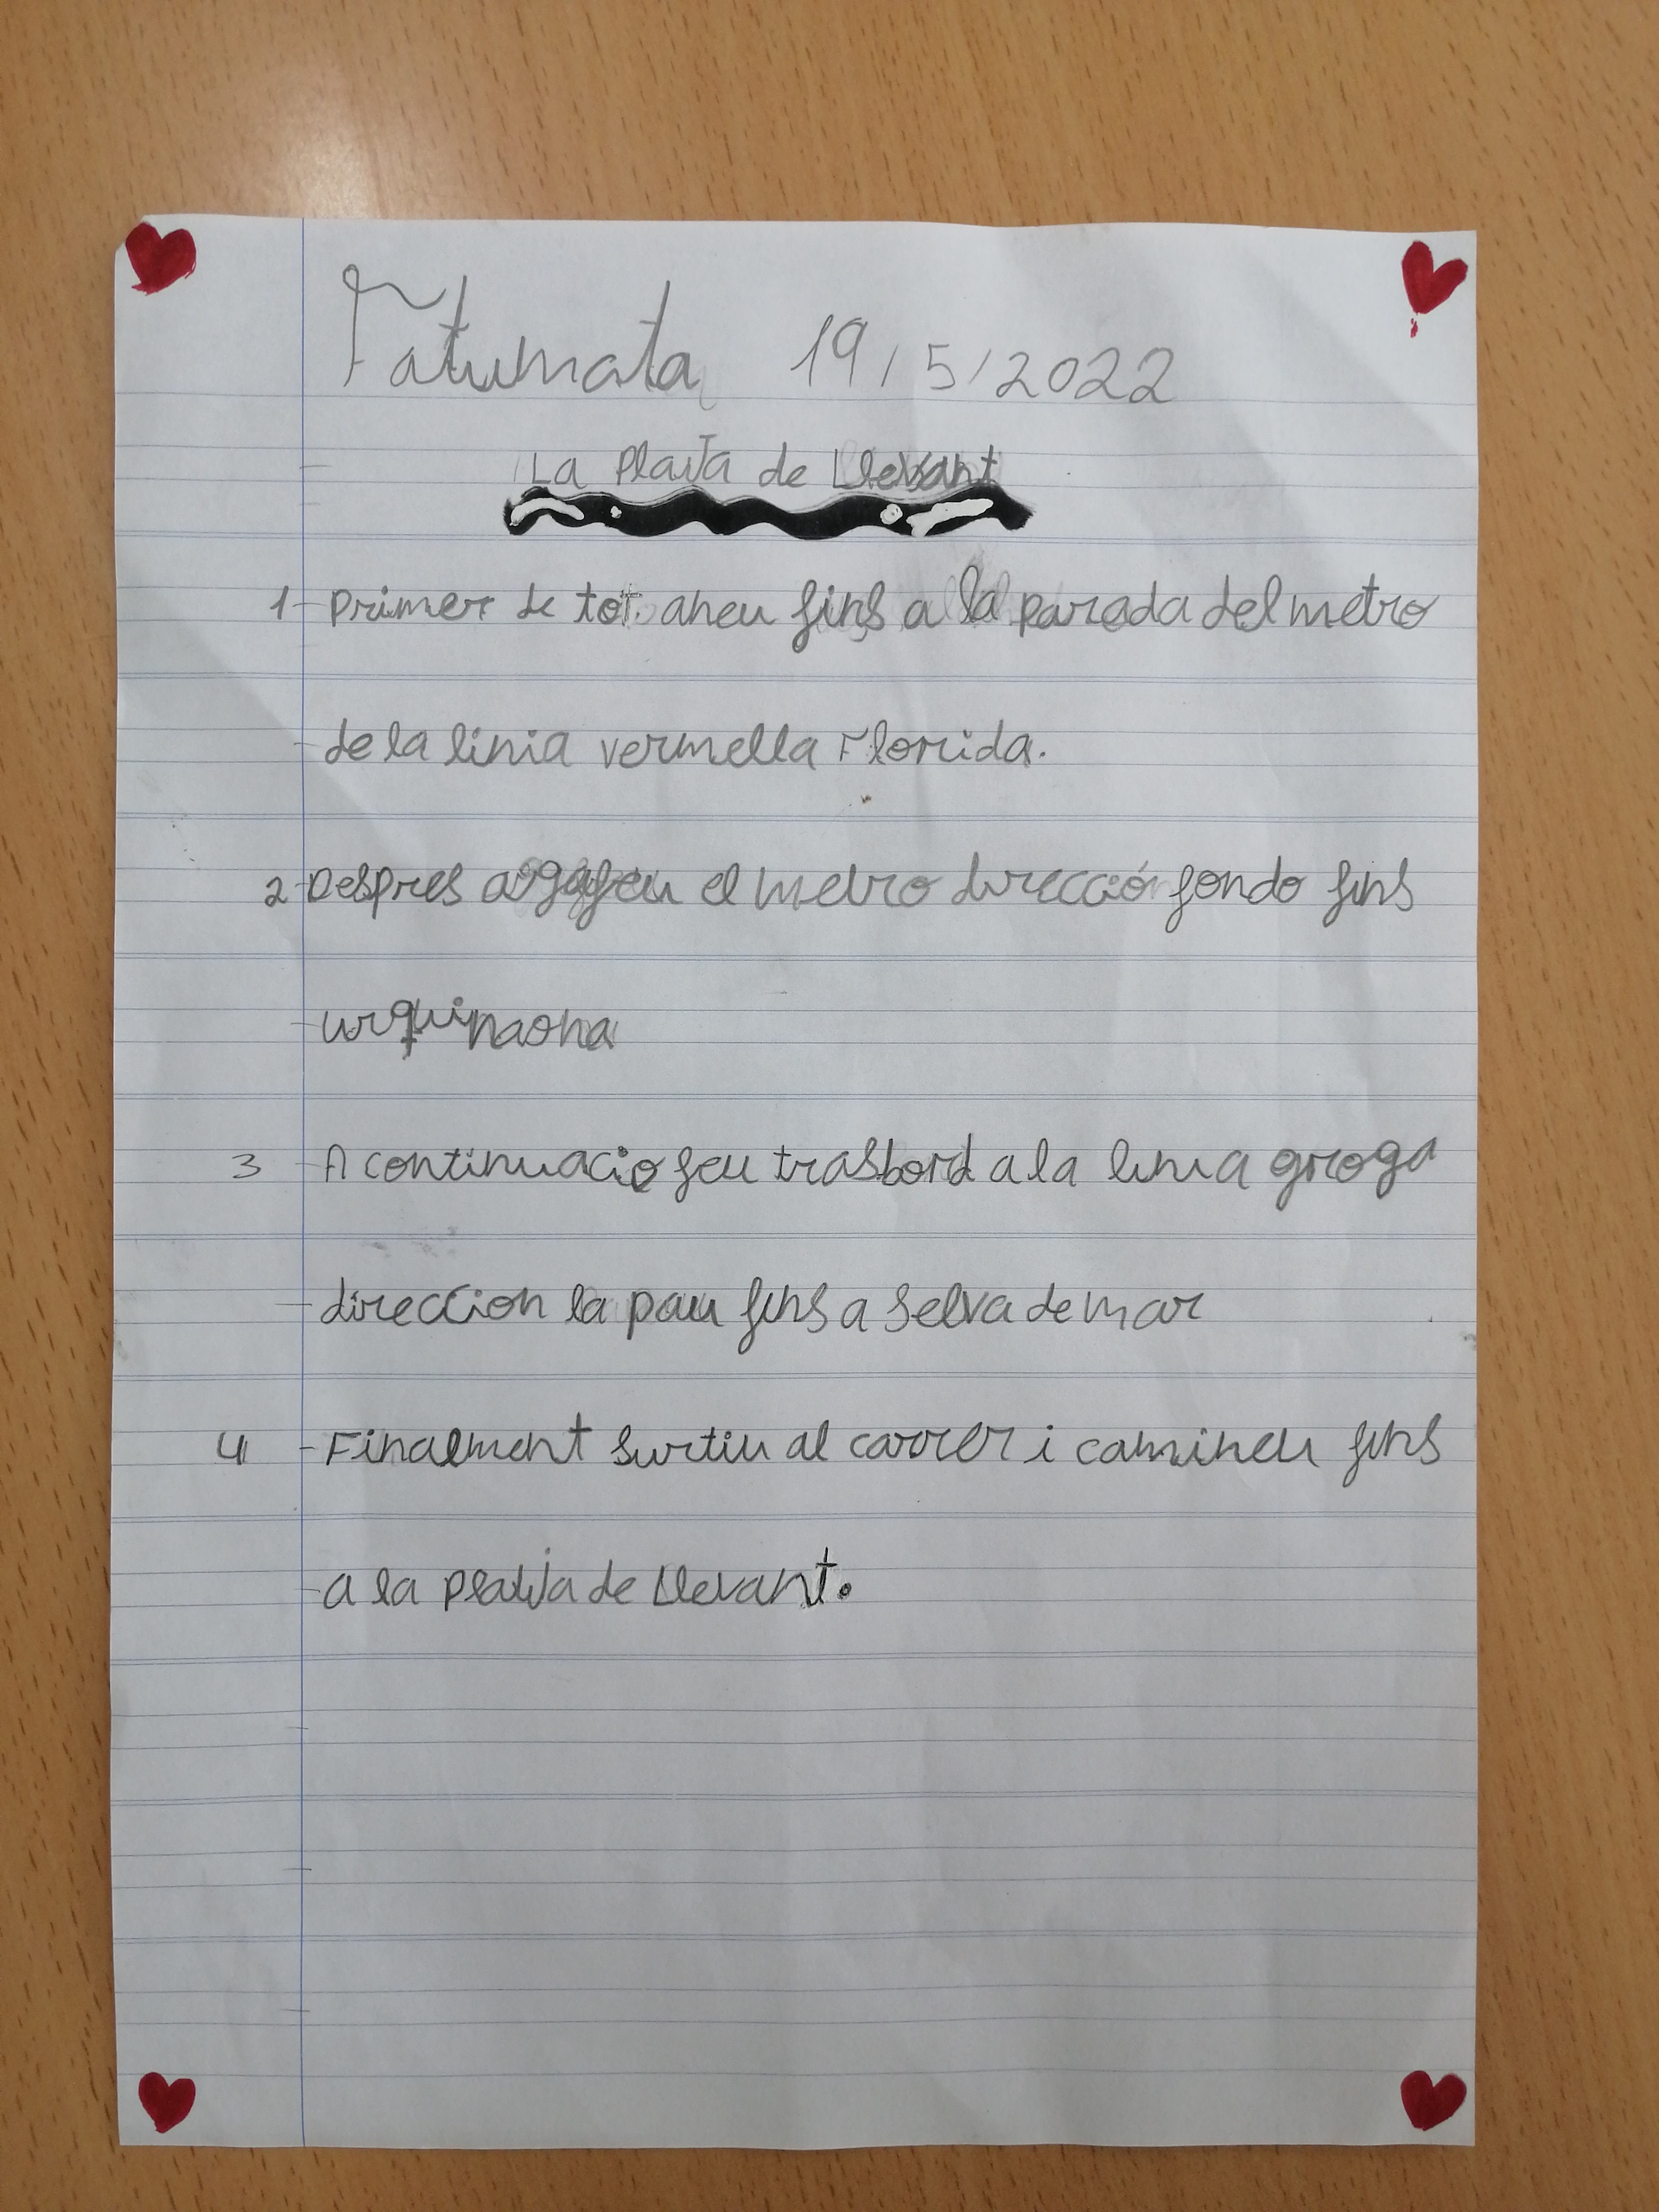 Fatumata 19/5/2022
La Platja de Llevant
1 Primer de tot. aneu fins a la parada del metro
de la linia vermella Florida.
2 Despres agafeu el metro direcció fondo fins
urquinaona
3 A continuacio feu trasbord a la linia groga
direccion la pau fins a Selva de mar
4 Finalment surtiu al carrer i camineu fins
a la platja de Llevant.